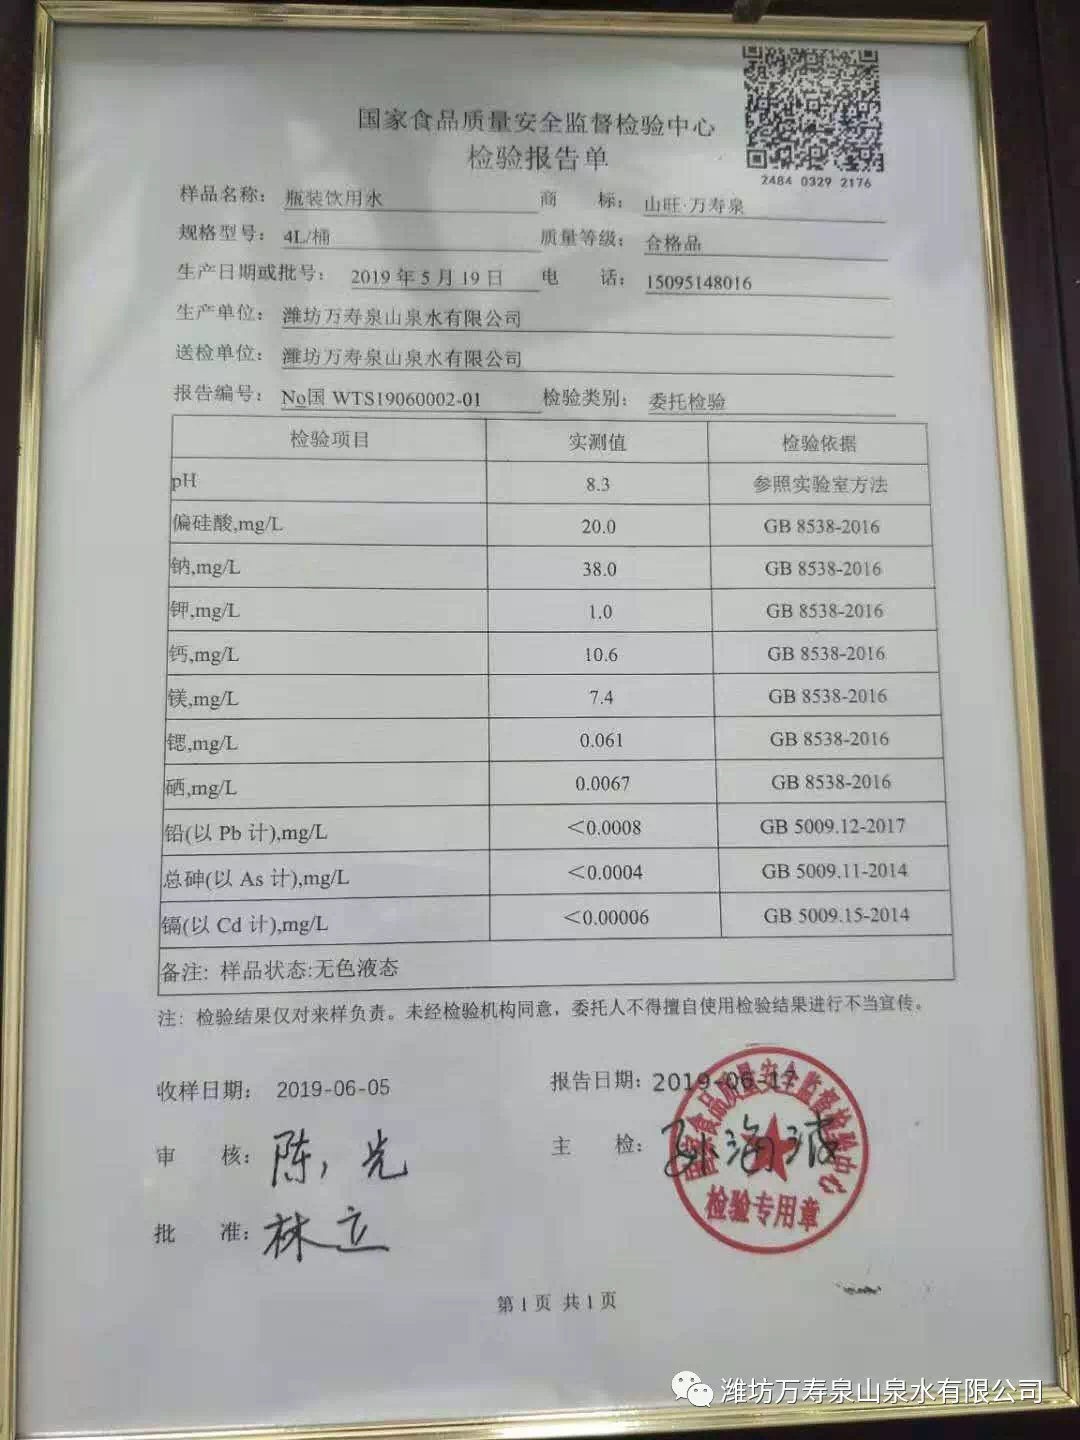 2484 0329 2176
国家食品质量安全监督检验中心
检验报告单
样品名称: 瓶装饮用水 商 标: 山旺·万寿泉
规格型号: 4L/桶 质量等级: 合格品
生产日期或批号: 2019 年 5 月 19 日 电 话: 15095148016
生产单位: 潍坊万寿泉山泉水有限公司
送检单位: 潍坊万寿泉山泉水有限公司
报告编号: No国 WTS19060002-01 检验类别: 委托检验
检验项目 实测值 检验依据
pH 8.3 参照实验室方法
偏硅酸,mg/L 20.0 GB 8538-2016
钠,mg/L 38.0 GB 8538-2016
钾,mg/L 1.0 GB 8538-2016
钙,mg/L 10.6 GB 8538-2016
镁,mg/L 7.4 GB 8538-2016
锶,mg/L 0.061 GB 8538-2016
硒,mg/L 0.0067 GB 8538-2016
铅(以 Pb 计),mg/L <0.0008 GB 5009.12-2017
总砷(以 As 计),mg/L <0.0004 GB 5009.11-2014
镉(以 Cd 计),mg/L <0.00006 GB 5009.15-2014
备注: 样品状态:无色液态
注: 检验结果仅对来样负责。未经检验机构同意，委托人不得擅自使用检验结果进行不当宣传。
收样日期: 2019-06-05 报告日期: 2019-06-17
审 核: 陈光 主 检: 孙海波
国家食品质量安全监督检验中心
检验专用章
批 准: 林立
第 1 页 共 1 页
潍坊万寿泉山泉水有限公司